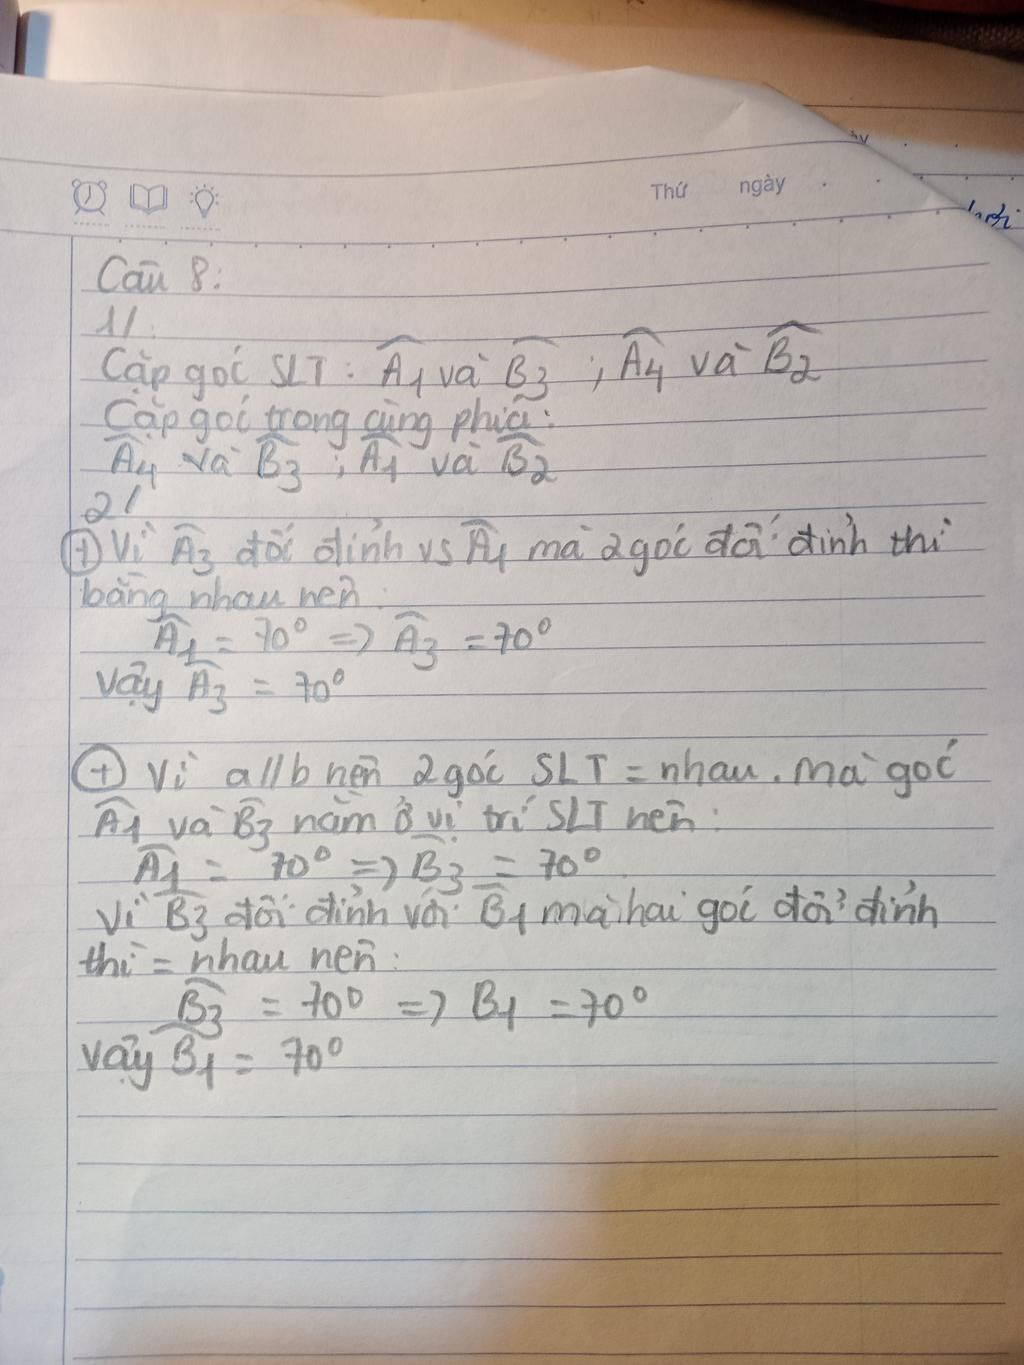 Thứ ngày
Câu 8:
1/.
Cặp góc SLT: A₁ và B₃ ; A₄ và B₂
Cặp góc trong cùng phía:
A₄ và B₃ ; A₁ và B₂
2/
+ Vì A₃ đối đỉnh vs A₁ mà 2 góc đối đỉnh thì
bằng nhau nên:
A₁ = 70° => A₃ = 70°
Vậy A₃ = 70°
+ Vì a//b nên 2 góc SLT = nhau. mà góc
A₁ và B₃ nằm ở vị trí SLT nên:
A₁ = 70° => B₃ = 70°
Vì B₃ đối đỉnh với B₁ mà hai góc đối đỉnh
thì = nhau nên:
B₃ = 70° => B₁ = 70°
Vậy B₁ = 70°